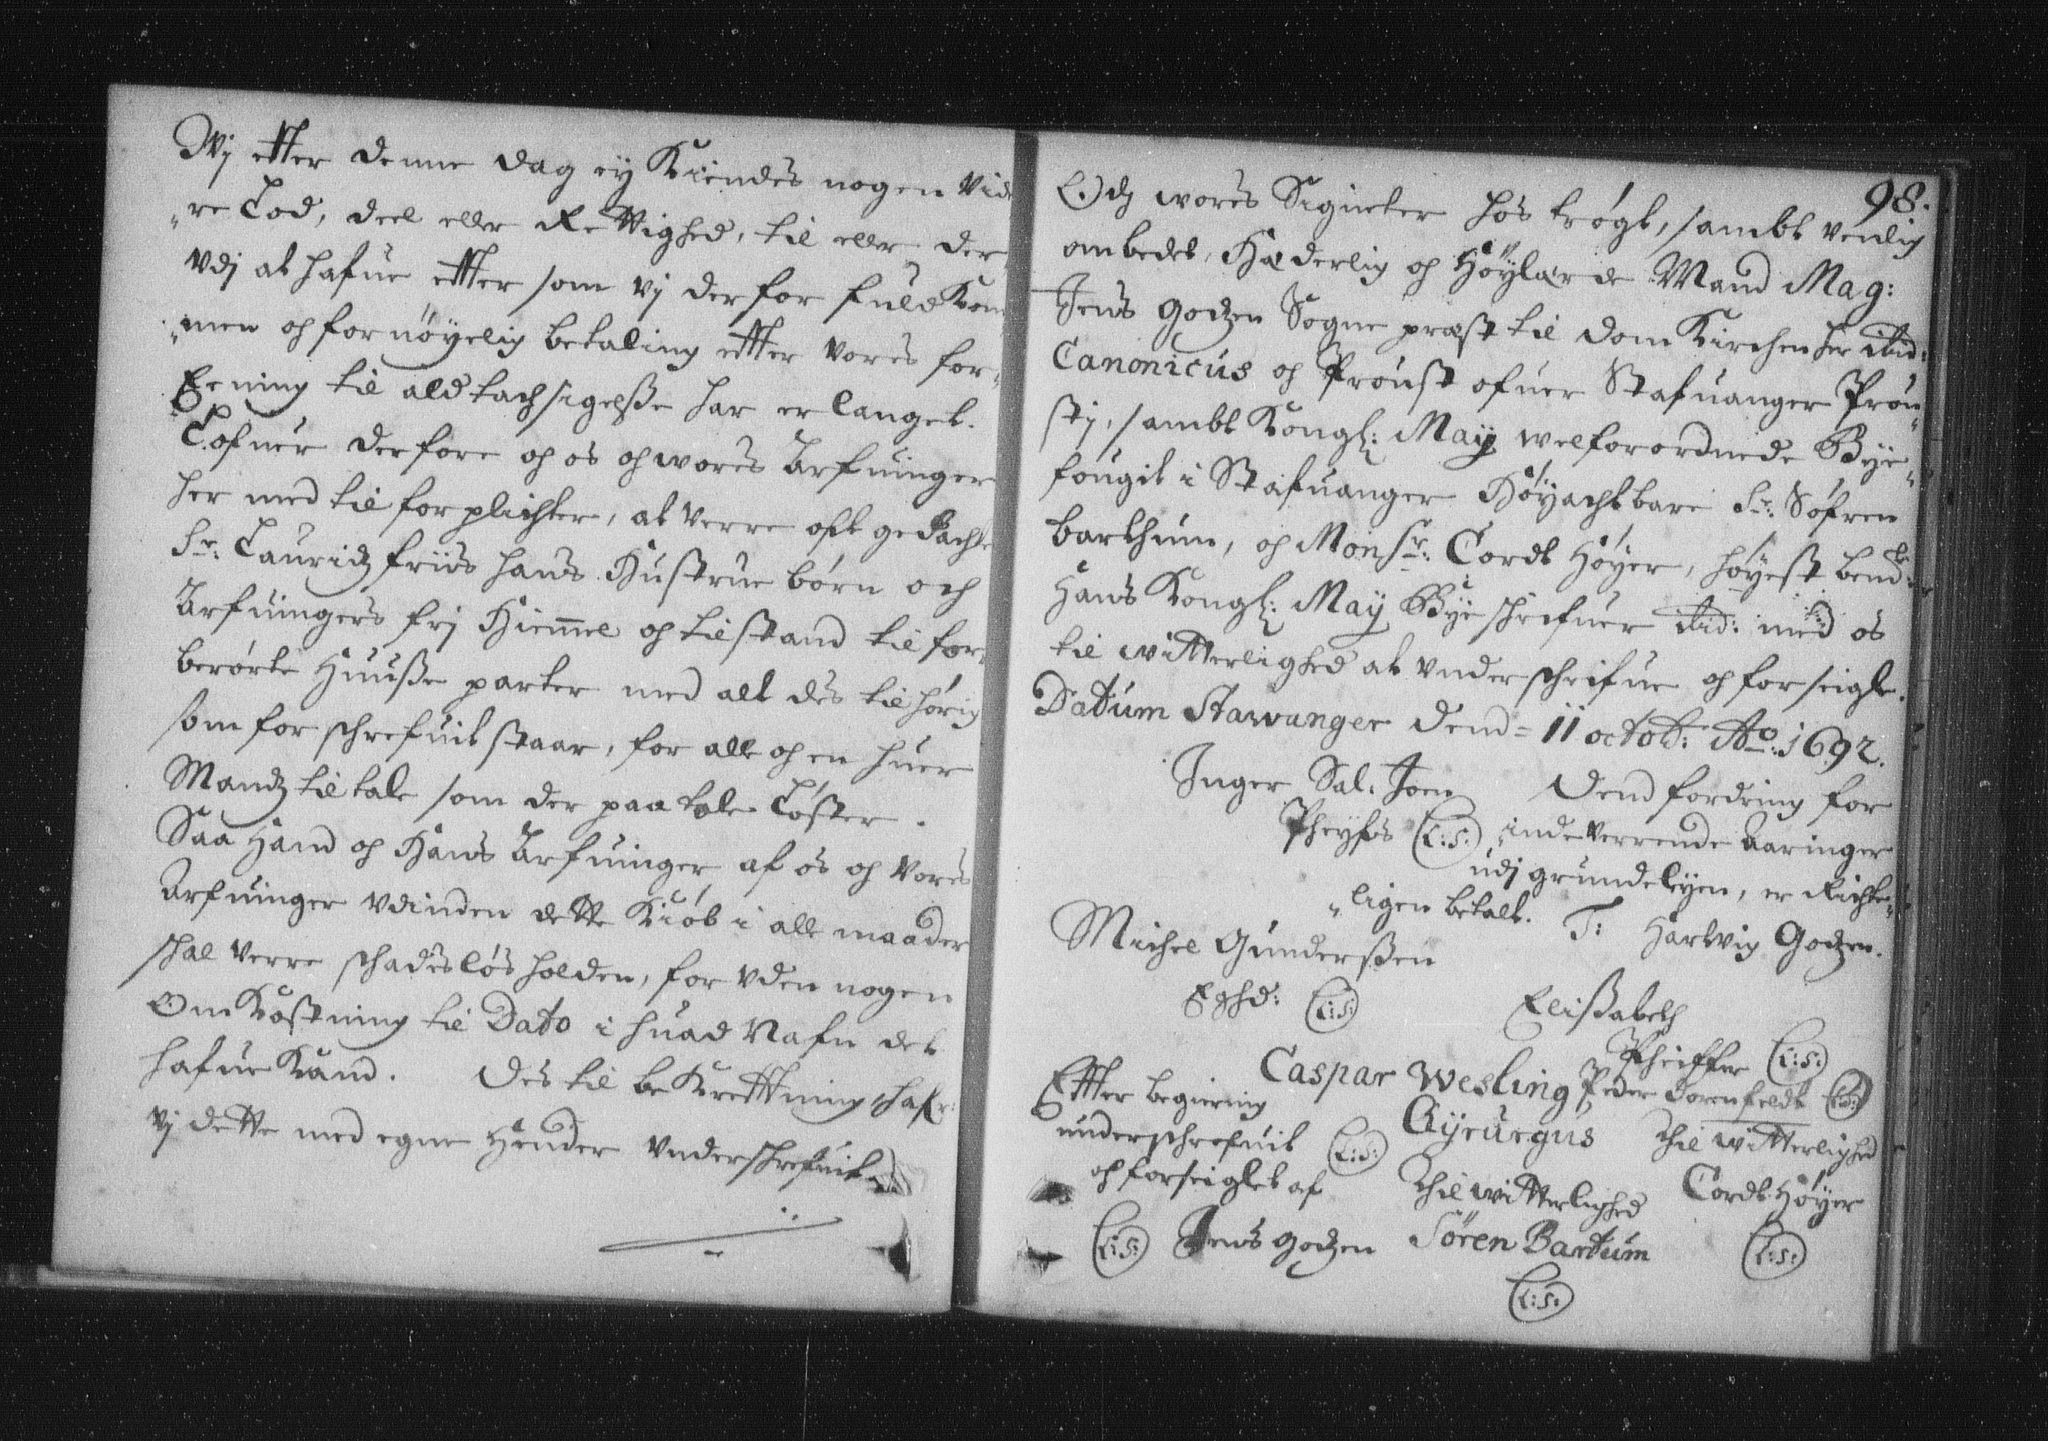 Wj etter denne dag ey Kiendes nogen vide
"re Lod, deel eller Rettighed, til eller der
vdj at hafue etter som vj derfor fuldkom
"men og fornøyelig betaling etter vores for"
Eening til ald tachsigelsse har erlanget.
Lofuer derfore og os og wores Arfuinger
her med til forplichter, at verre oft gedachte
Sr. Lauridz friis hans Hustrue børn och
Arfuingers frj Hiemmel og tilstand til for"
berørte Huusse parter med alt des tilhørig
som forschrefuit staar, for alle og en huer
Mandz tiltale som der paa tale Løster.
Saa Hand og Hans Arfuinger af os og vores
Arfuinger vdinden dette Kiøb i alle maader
schal verre schadesløs holden, foruden nogen
Omkostning til Dato i huad Nafn det
hafue Kand. Des til bekreftning hafr:
vj dette med egne Hender vnderschrefuit
98.
Och wores Signeter hos trøgt, sambt venlig
ombedet, Hæderlig og Høylærde Mand Mag:
Jens Godzen Sogne præst til Dom Kirchen her ibid:
Canonicus og Proust ofuer Stafuanger Prou"
stj, sambt Kongl: May welforordnede Bye"
fougit i Stafuanger Høyachtbare Sr. Søfren
barthum, og Monsr. Cordt Høyer, høyest bend.te
Hans Kongl: May Bye schrifuer ibid: med os
til witterlighed at vnderschrifue og forseigle.
Datum Stawanger dend= 11 octob: Ao. 1692.
Inger Sal. Joen
Pheyfs (L:S:)
Dend fordring for
inde verrende Aaringer
udj grundeleyen, er Richte"
"ligen betalt. T: Hartvig Godzen.
Michel Gunderssen
Eghd: (L:S:)
Elissabeth
Pheiffer (L:S:)
Caspar Wesling
Cyrurgus
Peder dorenfeldt (L:S:)
Etter begiering
underschrefuit (L:S:)
og forseiglet af
Thil witterlighed
Cordt Høyer
Thil witterlighed
(L:S:) Jens Godzen
Søren Bartum
(L:S:)
(L:S:)